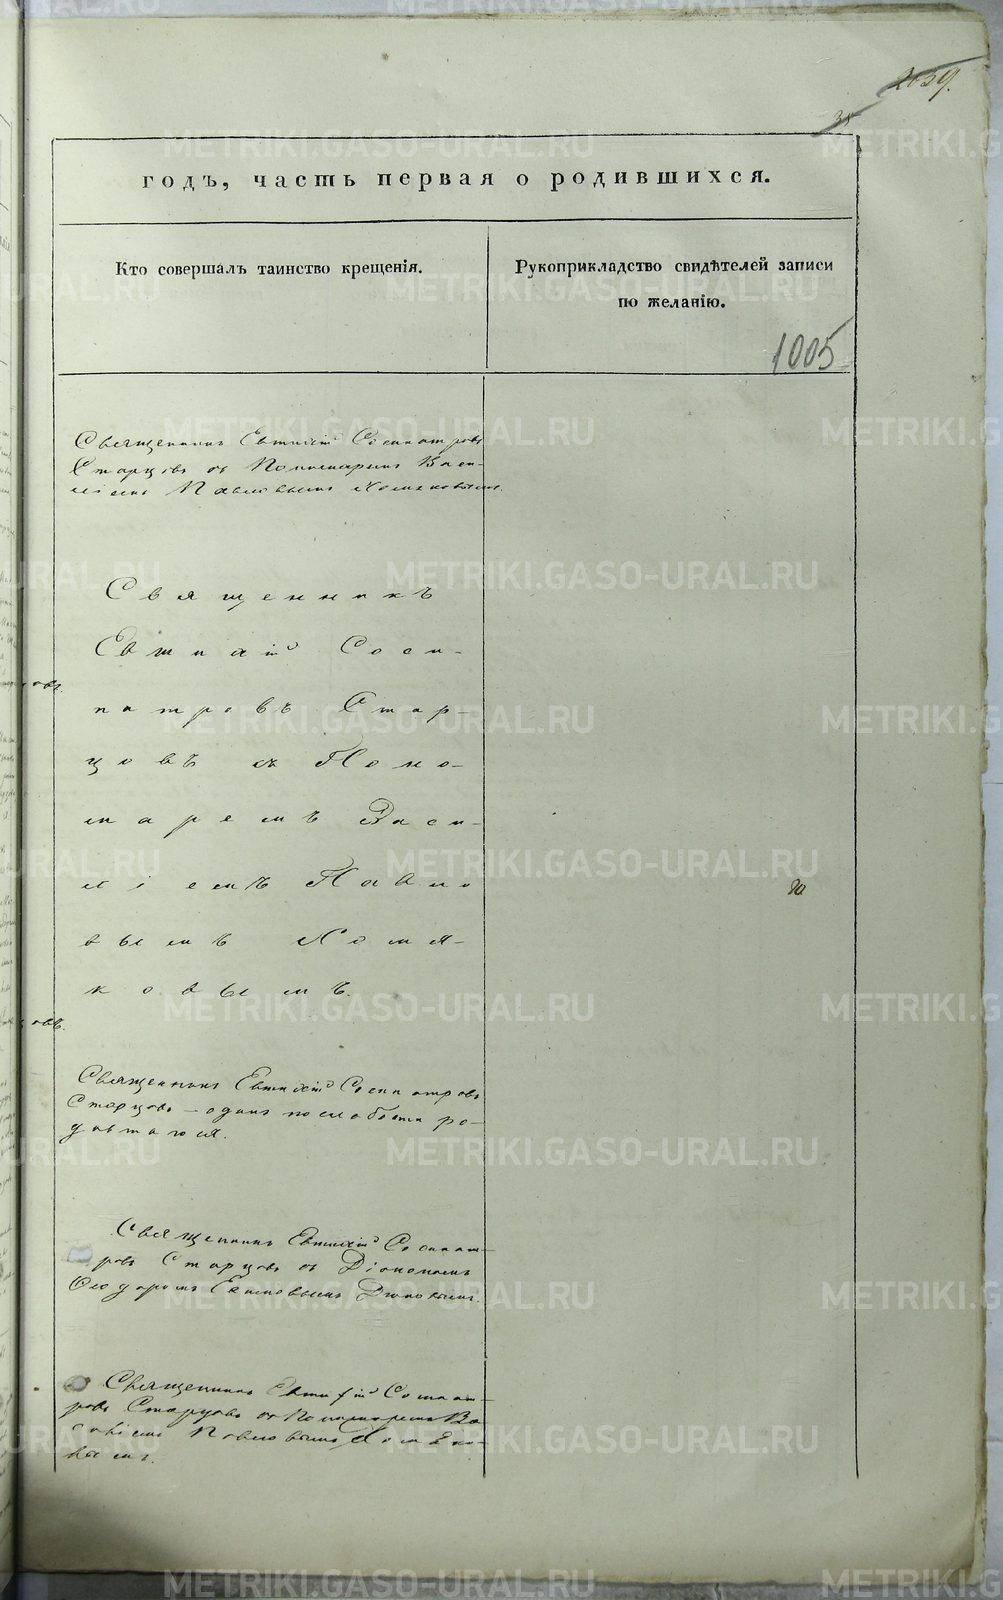 2659.
35
годъ, часть первая о родившихся.
Кто совершалъ таинство крещенія.
Рукоприкладство свидѣтелей записи
по желанію.
1005
Священникъ Евтихій Сосипатровъ
Старцовъ съ Пономаремъ Васи-
ліемъ Павловымъ Хомяковымъ.
Священникъ
Евтихій Соси-
патровъ Стар-
цовъ съ Поно-
маремъ Васи-
ліемъ Павло
вымъ Хомя-
ковымъ.
овъ.
овъ.
Священникъ Евтихій Сосипатровъ
Старцовъ – одинъ по слабости ро-
дившагося.
Священникъ Евтихій Сосипат-
ровъ Старцовъ съ Діакономъ
Ѳеодоромъ Екимовымъ
Священникъ Евтихій Сосипат-
ровъ Старцовъ съ Пономаремъ Ва
силіемъ Павловымъ Хомяко-
вымъ.
METRIKI.GASO-URAL.RU